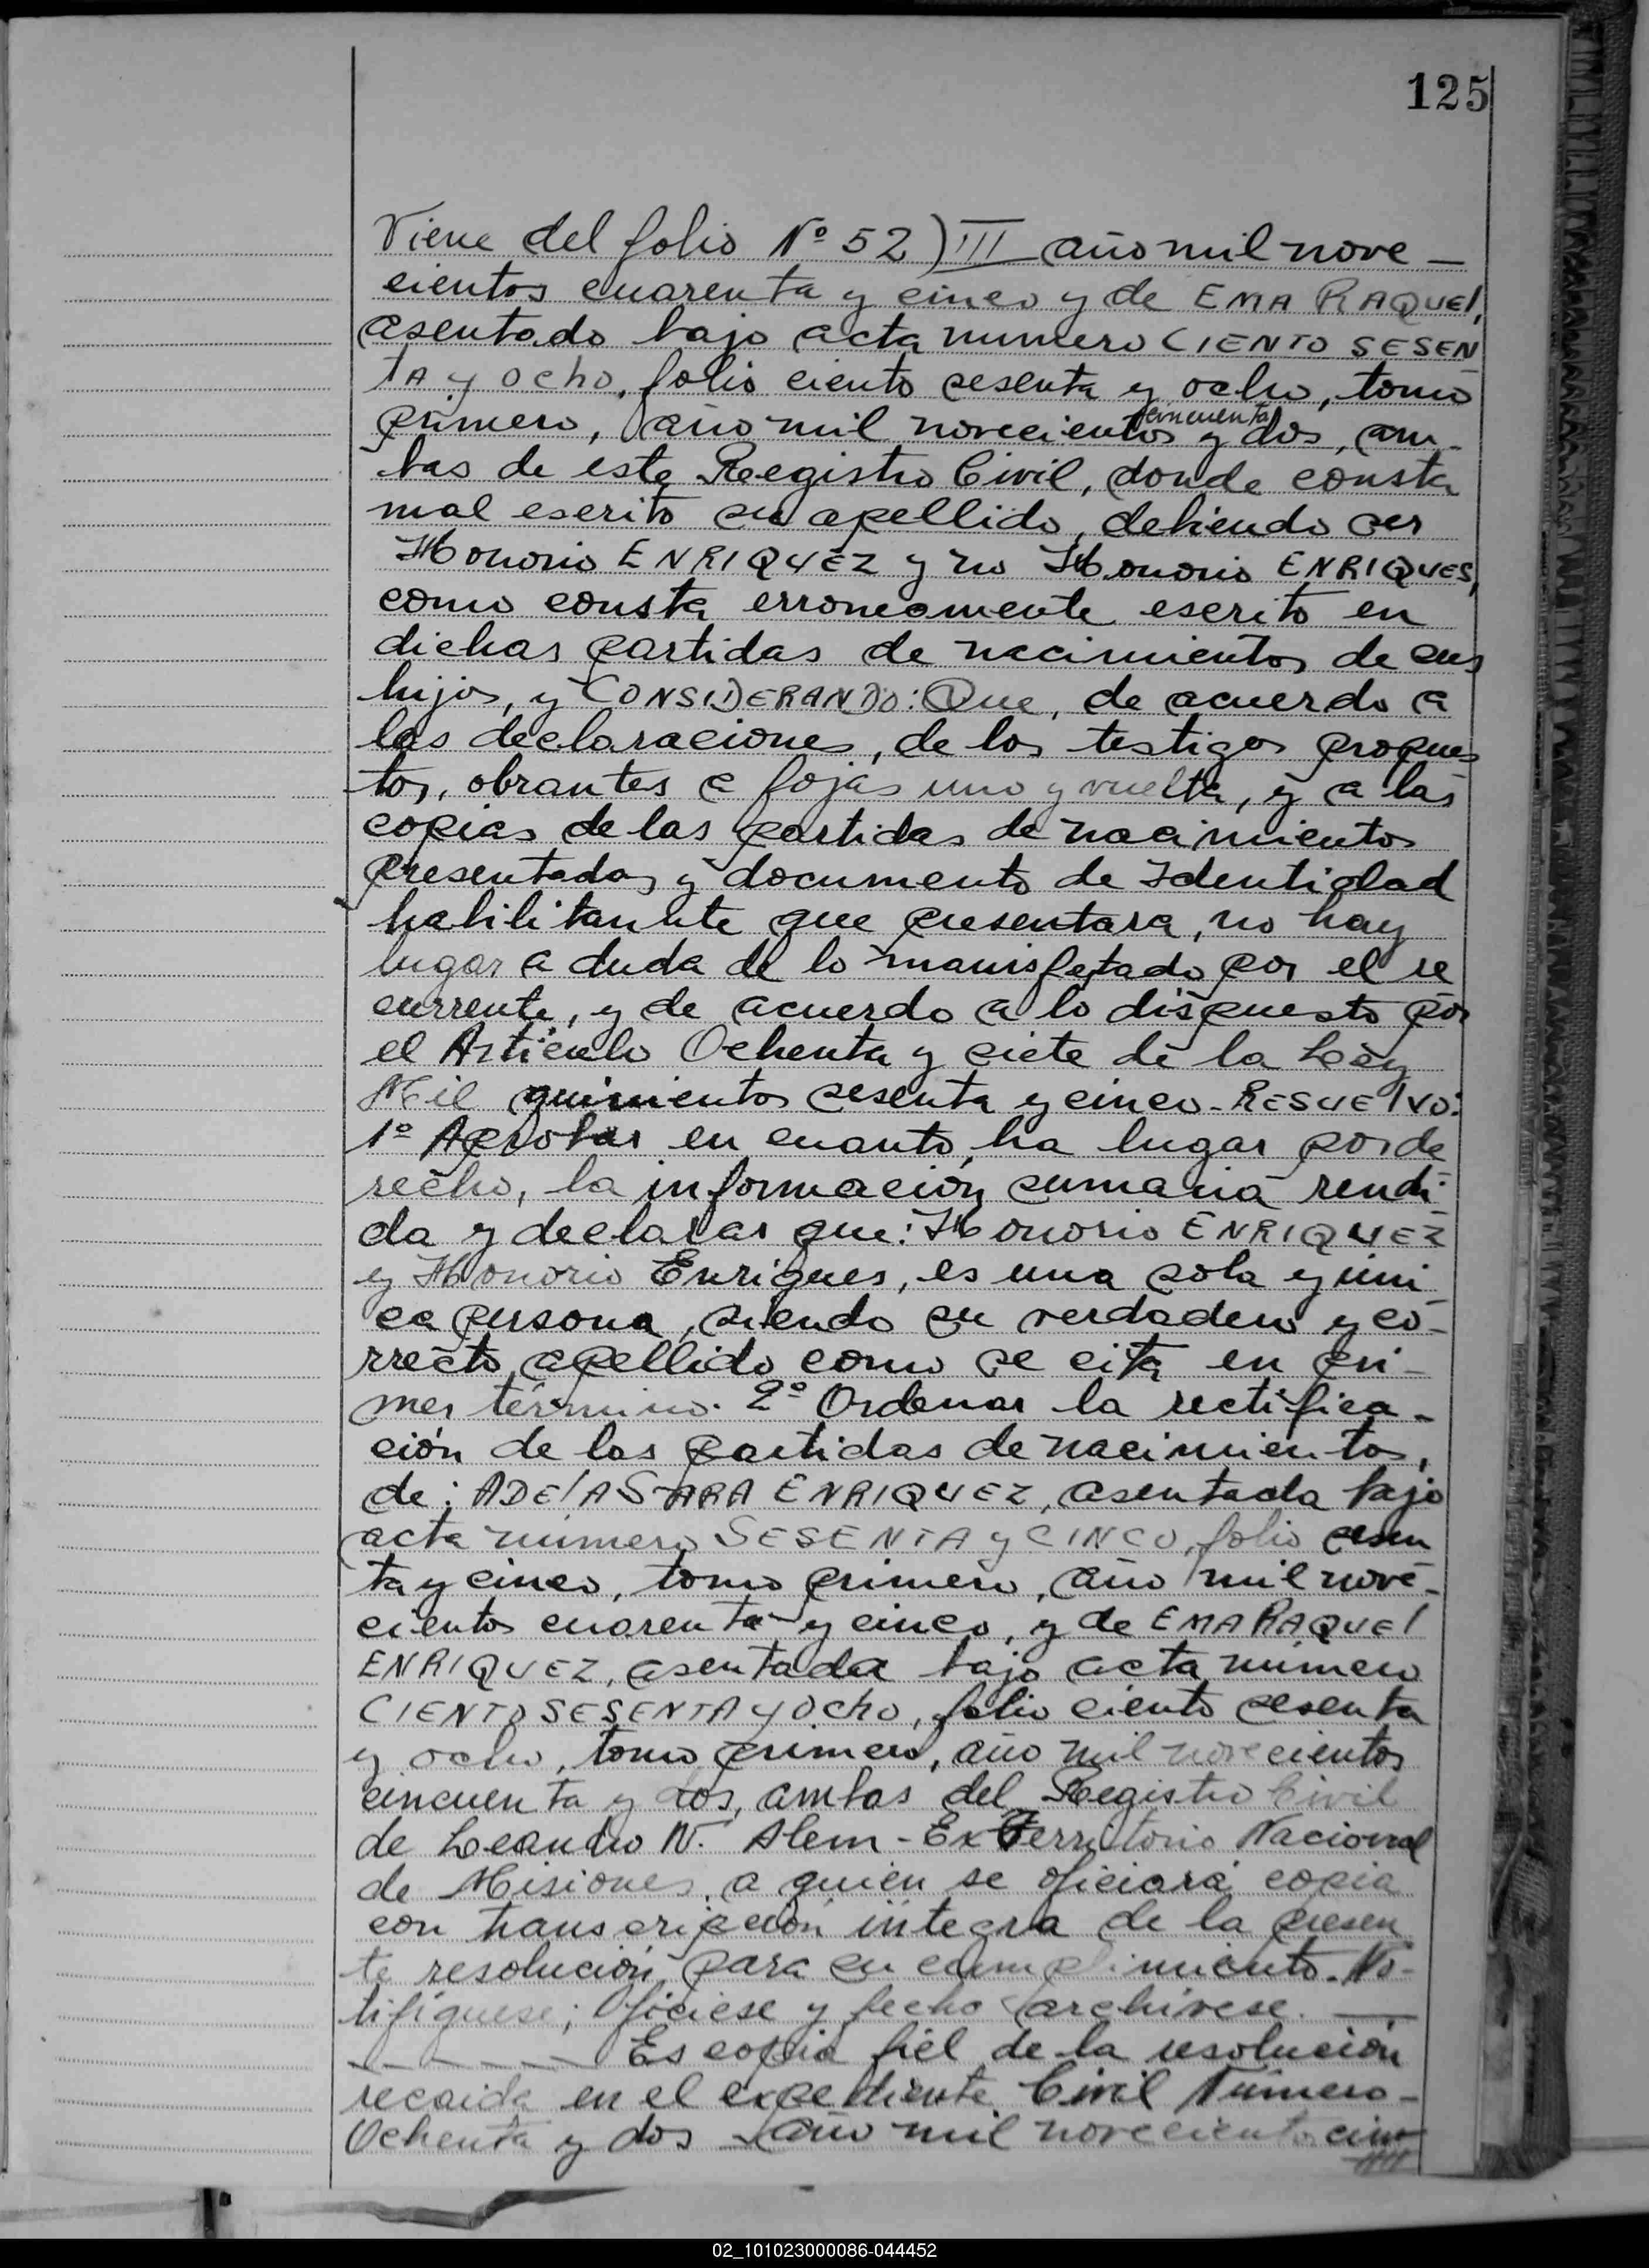 125
Viene del folio Nº 52) III año mil nove-
cientos cuarenta y cinco y de EMA RAQUEl,
asentado bajo acta numero CIENTO SESEN
TA y Ocho, folio ciento sesenta y ocho, tomo
primero, año mil novecientos cincuenta y dos, am-
bas de este Registro Civil, donde consta
mal escrito su apellido, debiendo ser
Honorio ENRIQUEZ y no Honorio ENRIQUES,
como consta erroneamente escrito en
dichas partidas de nacimientos de sus
hijos, y CONSIDERANDO: Que, de acuerdo a
las declaraciones, de los testigos propues
tos, obrantes a fojas uno y vuelta, y a las
copias de las partidas de nacimientos
presentadas y documento de Identidad
habilitante que presentara, no hay
lugar a duda de lo manisfestado por el re
currente, y de acuerdo a lo dispuesto por
el Articulo Ochenta y siete de la Ley
Mil quinientos sesenta y cinco - RESUElVO:
1º Aprobar en cuanto ha lugar por de
recho, la información sumaria rendi
da y declarar que: Honorio ENRIQUEZ
y Honorio Enriques, es una sola y uni
ca persona, siendo su verdadero y co-
rrecto apellido como se cita en pri-
mer término. 2º Ordenar la rectifica-
ción de las partidas de nacimientos,
de: ADElA SARA ENRIQUEZ, asentada bajo
acta número SESENTA y CINCO, folio sesen
ta y cinco, tomo primero, año mil nove-
cientos cuarenta y cinco, y de EMA RAQUEl
ENRIQUEZ, asentada bajo acta numero
CIENTO SESENTA y Ocho, folio ciento sesenta
y ocho, tomo primero, año mil novecientos
cincuenta y dos, ambas del Registro Civil
de Leandro N. Alem - Ex Territorio Nacional
de Misiones, a quien se oficiará copia
con transcripción integra de la presen
te resolución para su cumplimiento. No-
tifiquese; ofíciese y fecho archívese.
Es copia fiel de la resolución
recaida en el expediente Civil Número-
Ochenta y dos - año mil novecientos cin
02_101023000086-044452